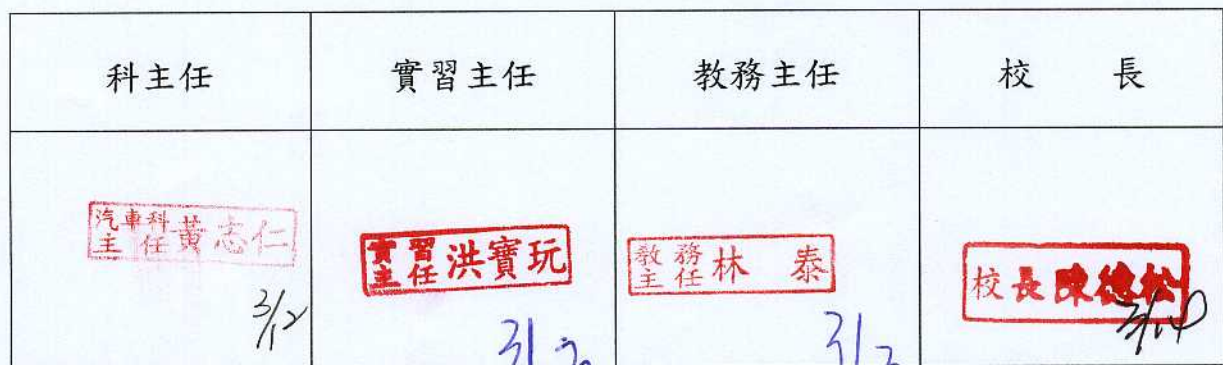 科主任
實習主任
教務主任
校 長
汽車科
主 任
黃志仁
3/12
實習
主任
洪寶玩
教務
主任
林 泰
校長陳德松
3/14